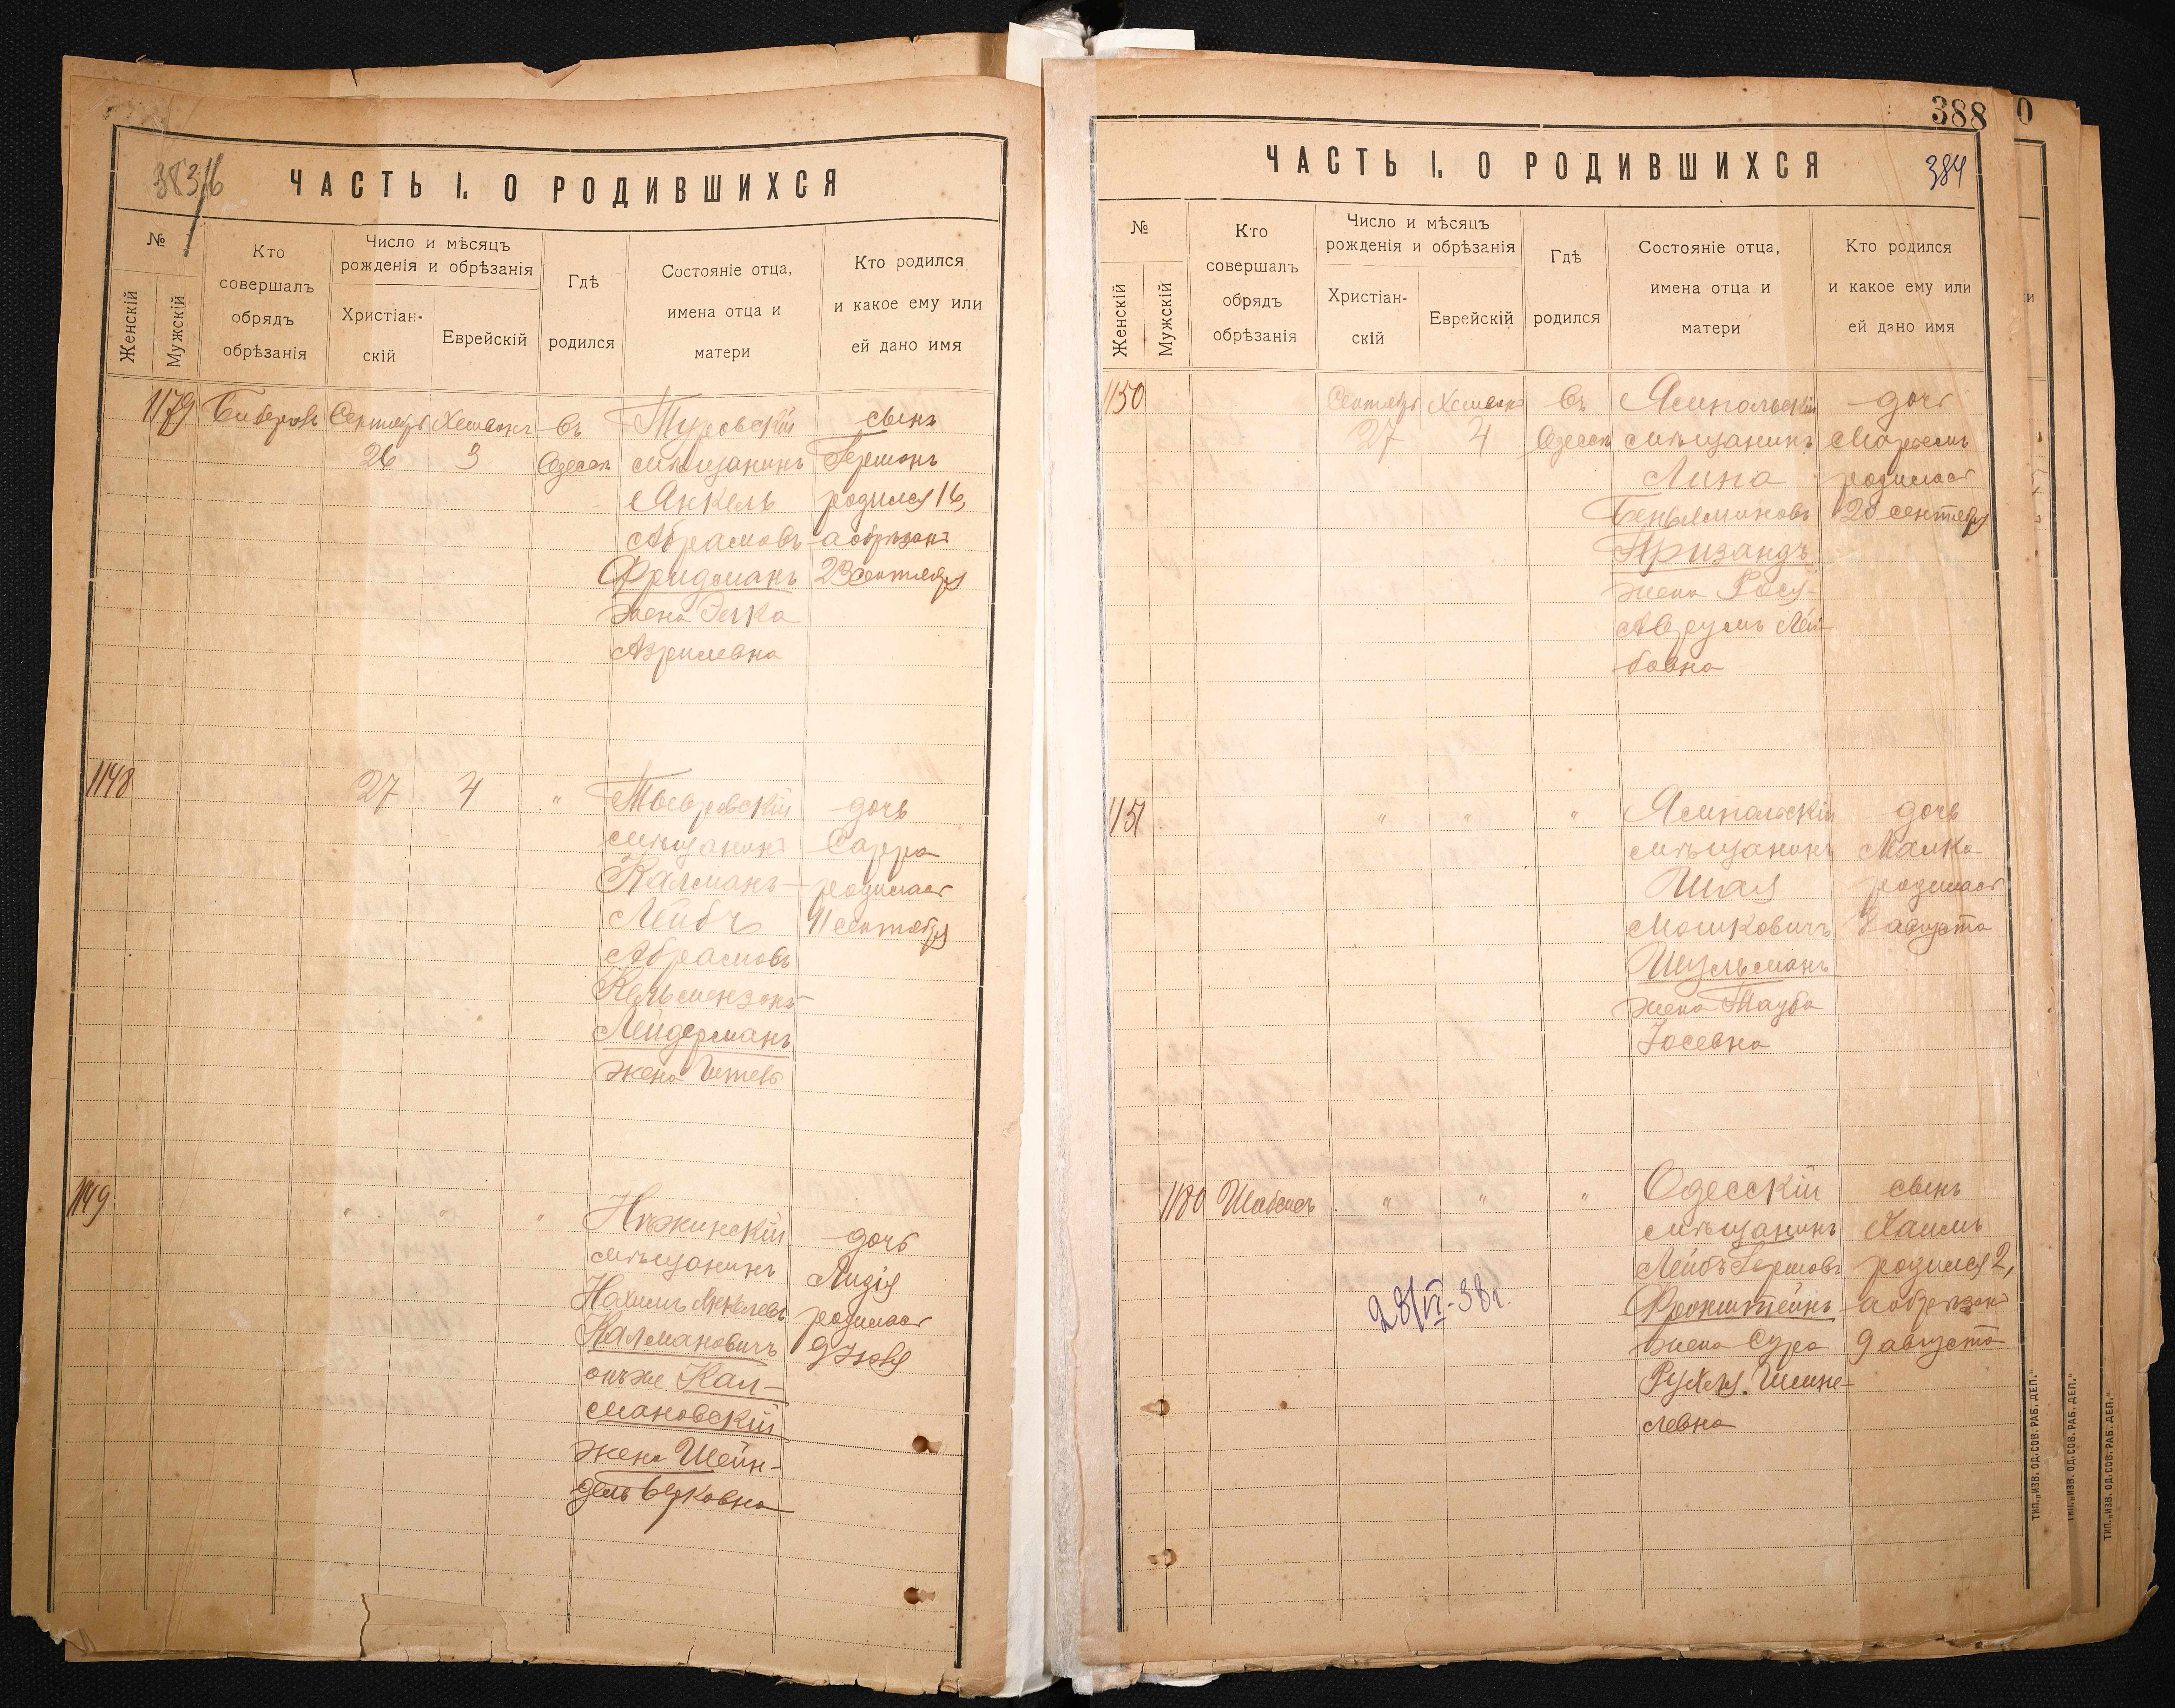 383
ЧАСТЬ I. О РОДИВШИХСЯ
№
Женскій
Мужскій
Кто
совершалъ
обрядъ
обрѣзанія
Число и мѣсяцъ
рожденія и обрѣзанія
Христіан-
скій
Еврейскій
Гдѣ
родился
Состояніе отца,
имена отца и
матери
Кто родился
и какое ему или
ей дано имя
1179
Сентябр
26
Хешвонъ
3
въ
Одессѣ
Туровскій
мѣщанинъ
Янкель
Абрамовъ
Фридманъ
жена
Азрилевна
сынъ
Гершонъ
родился 16,
а обрѣзанъ
23 сентября
1148
27
4
"
мѣщанинъ
Калманъ-
Лейбъ
Абрамовъ
Лейдерманъ
жена
дочь
Сарра
родилась
11 сентября
1149
"
"
"
Нѣжинскій
мѣщанинъ
Нахимъ
Калмановичъ
онъ же Кал-
мановскій
жена Шейн-
дель Берковна
дочь
Лидія
родилась
388
ЧАСТЬ I. О РОДИВШИХСЯ
384
№
Женскій
Мужскій
Кто
совершалъ
обрядъ
обрѣзанія
Число и мѣсяцъ
рожденія и обрѣзанія
Христіан-
скій
Еврейскій
Гдѣ
родился
Состояніе отца,
имена отца и
матери
Кто родился
и какое ему или
ей дано имя
1150
Сентябр
27
Хешвонъ
4
Въ
Одессѣ
Ямпольскій
мѣщанинъ
Беньяминовъ
Призандъ
жена Рося-
Аврумъ Лей-
бовна
дочь
Марьемъ
родилась
20 сентября
1151
"
"
"
Ямпольскій
мѣщанинъ
Шая
Мошковичъ
Шульманъ
жена Тауба
Іосевна
дочь
Малка
родилась
8 августа
1180
"
"
"
Одесскій
мѣщанинъ
Лейбъ Гершовъ
Фронштейнъ
жена Сура
Рухля Шмие-
левна
сынъ
Хаимъ
родился 2,
а обрѣзанъ
9 августа
28/VI-38г.
ТИП. „ИЗВ. ОД. СОВ. РАБ. ДЕП.“
ТИП. „ИЗВ. ОД. СОВ. РАБ. ДЕП.“
ТИП. „ИЗВ. ОД. СОВ. РАБ. ДЕП.“